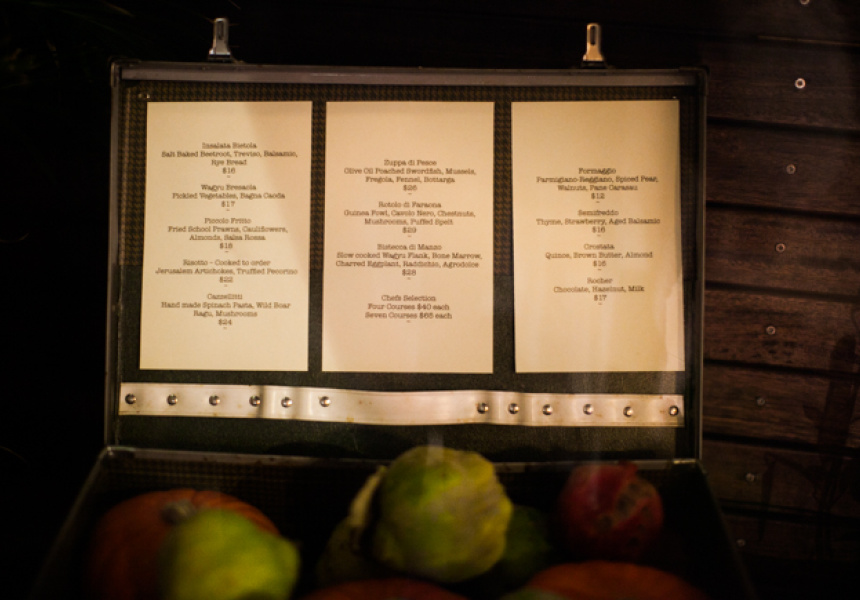 Insalata Bistola
Salt Baked Beetroot, Treviso, Balsamic,
Rye Bread
$16
Wagyu Bresaola
Pickled Vegetables, Bagna Caoda
$17
Piccolo Fritto
Fried School Prawns, Cauliflowers,
Almonds, Salsa Rossa
$18
Risotto - Cooked to order
Jerusalem Artichokes, Truffled Pecorino
$22
Hand made Spinach Pasta, Wild Boar
Ragu, Mushrooms
$24
Zuppa di Pesce
Olive Oil Poached Swordfish, Mussels,
Fregola, Fennel, Bottarga
$26
Rotolo di Faraona
Guinea Fowl, Cavolo Nero, Chestnuts,
Mushrooms, Puffed Spelt
$29
Bistecca di Manzo
Slow cooked Wagyu Flank, Bone Marrow,
Charred Eggplant, Raddichio, Agrodolce
$28
Chefs Selection
Four Courses $40 each
Seven Courses $65 each
Formaggio
Parmigiano Reggiano, Spiced Pear,
Walnuts, Pane Carasau
$12
Semifreddo
Thyme, Strawberry, Aged Balsamic
$16
Crostata
Quince, Brown Butter, Almond
$16
Rocher
Chocolate, Hazelnut, Milk
$17